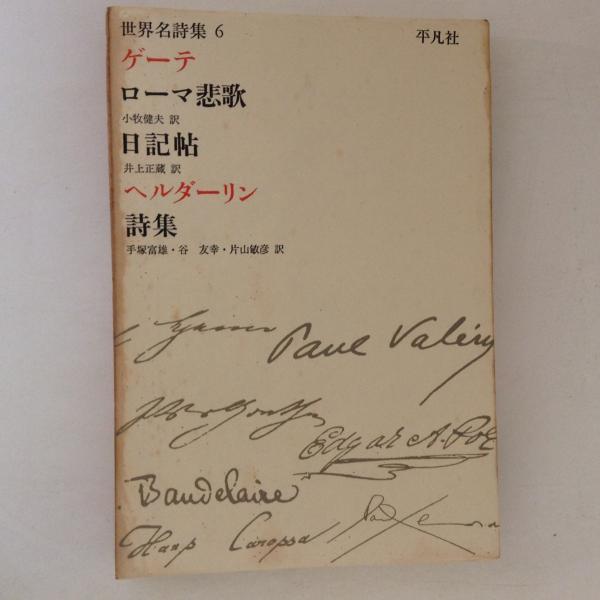 世界名詩集 6 平凡社
ゲーテ
ローマ悲歌
小牧健夫 訳
日記帖
井上正蔵 訳
ヘルダーリン
詩集
手塚富雄・谷 友幸・片山敏彦 訳
Paul Valéry
Edgar A. Poe
Baudelaire
Carossa